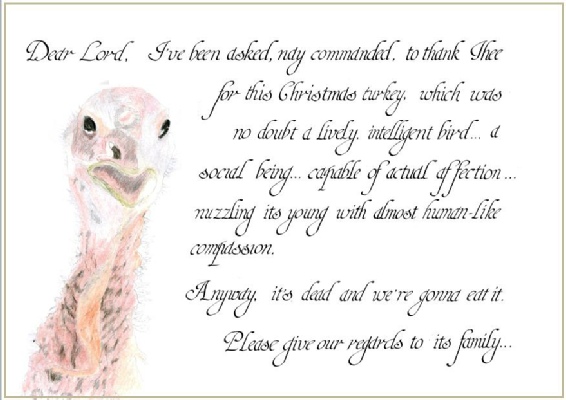 Dear Lord, I've been asked, nay commanded, to thank Thee
for this Christmas turkey, which was
no doubt a lively, intelligent bird... a
social being... capable of actual affection...
nuzzling its young with almost human-like
compassion.
Anyway, it's dead and we're gonna eat it.
Please give our regards to its family...